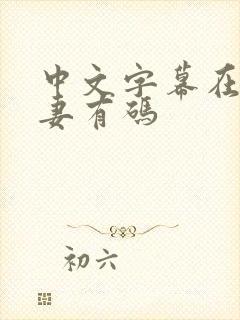 中文字幕在
妻有碼
初六